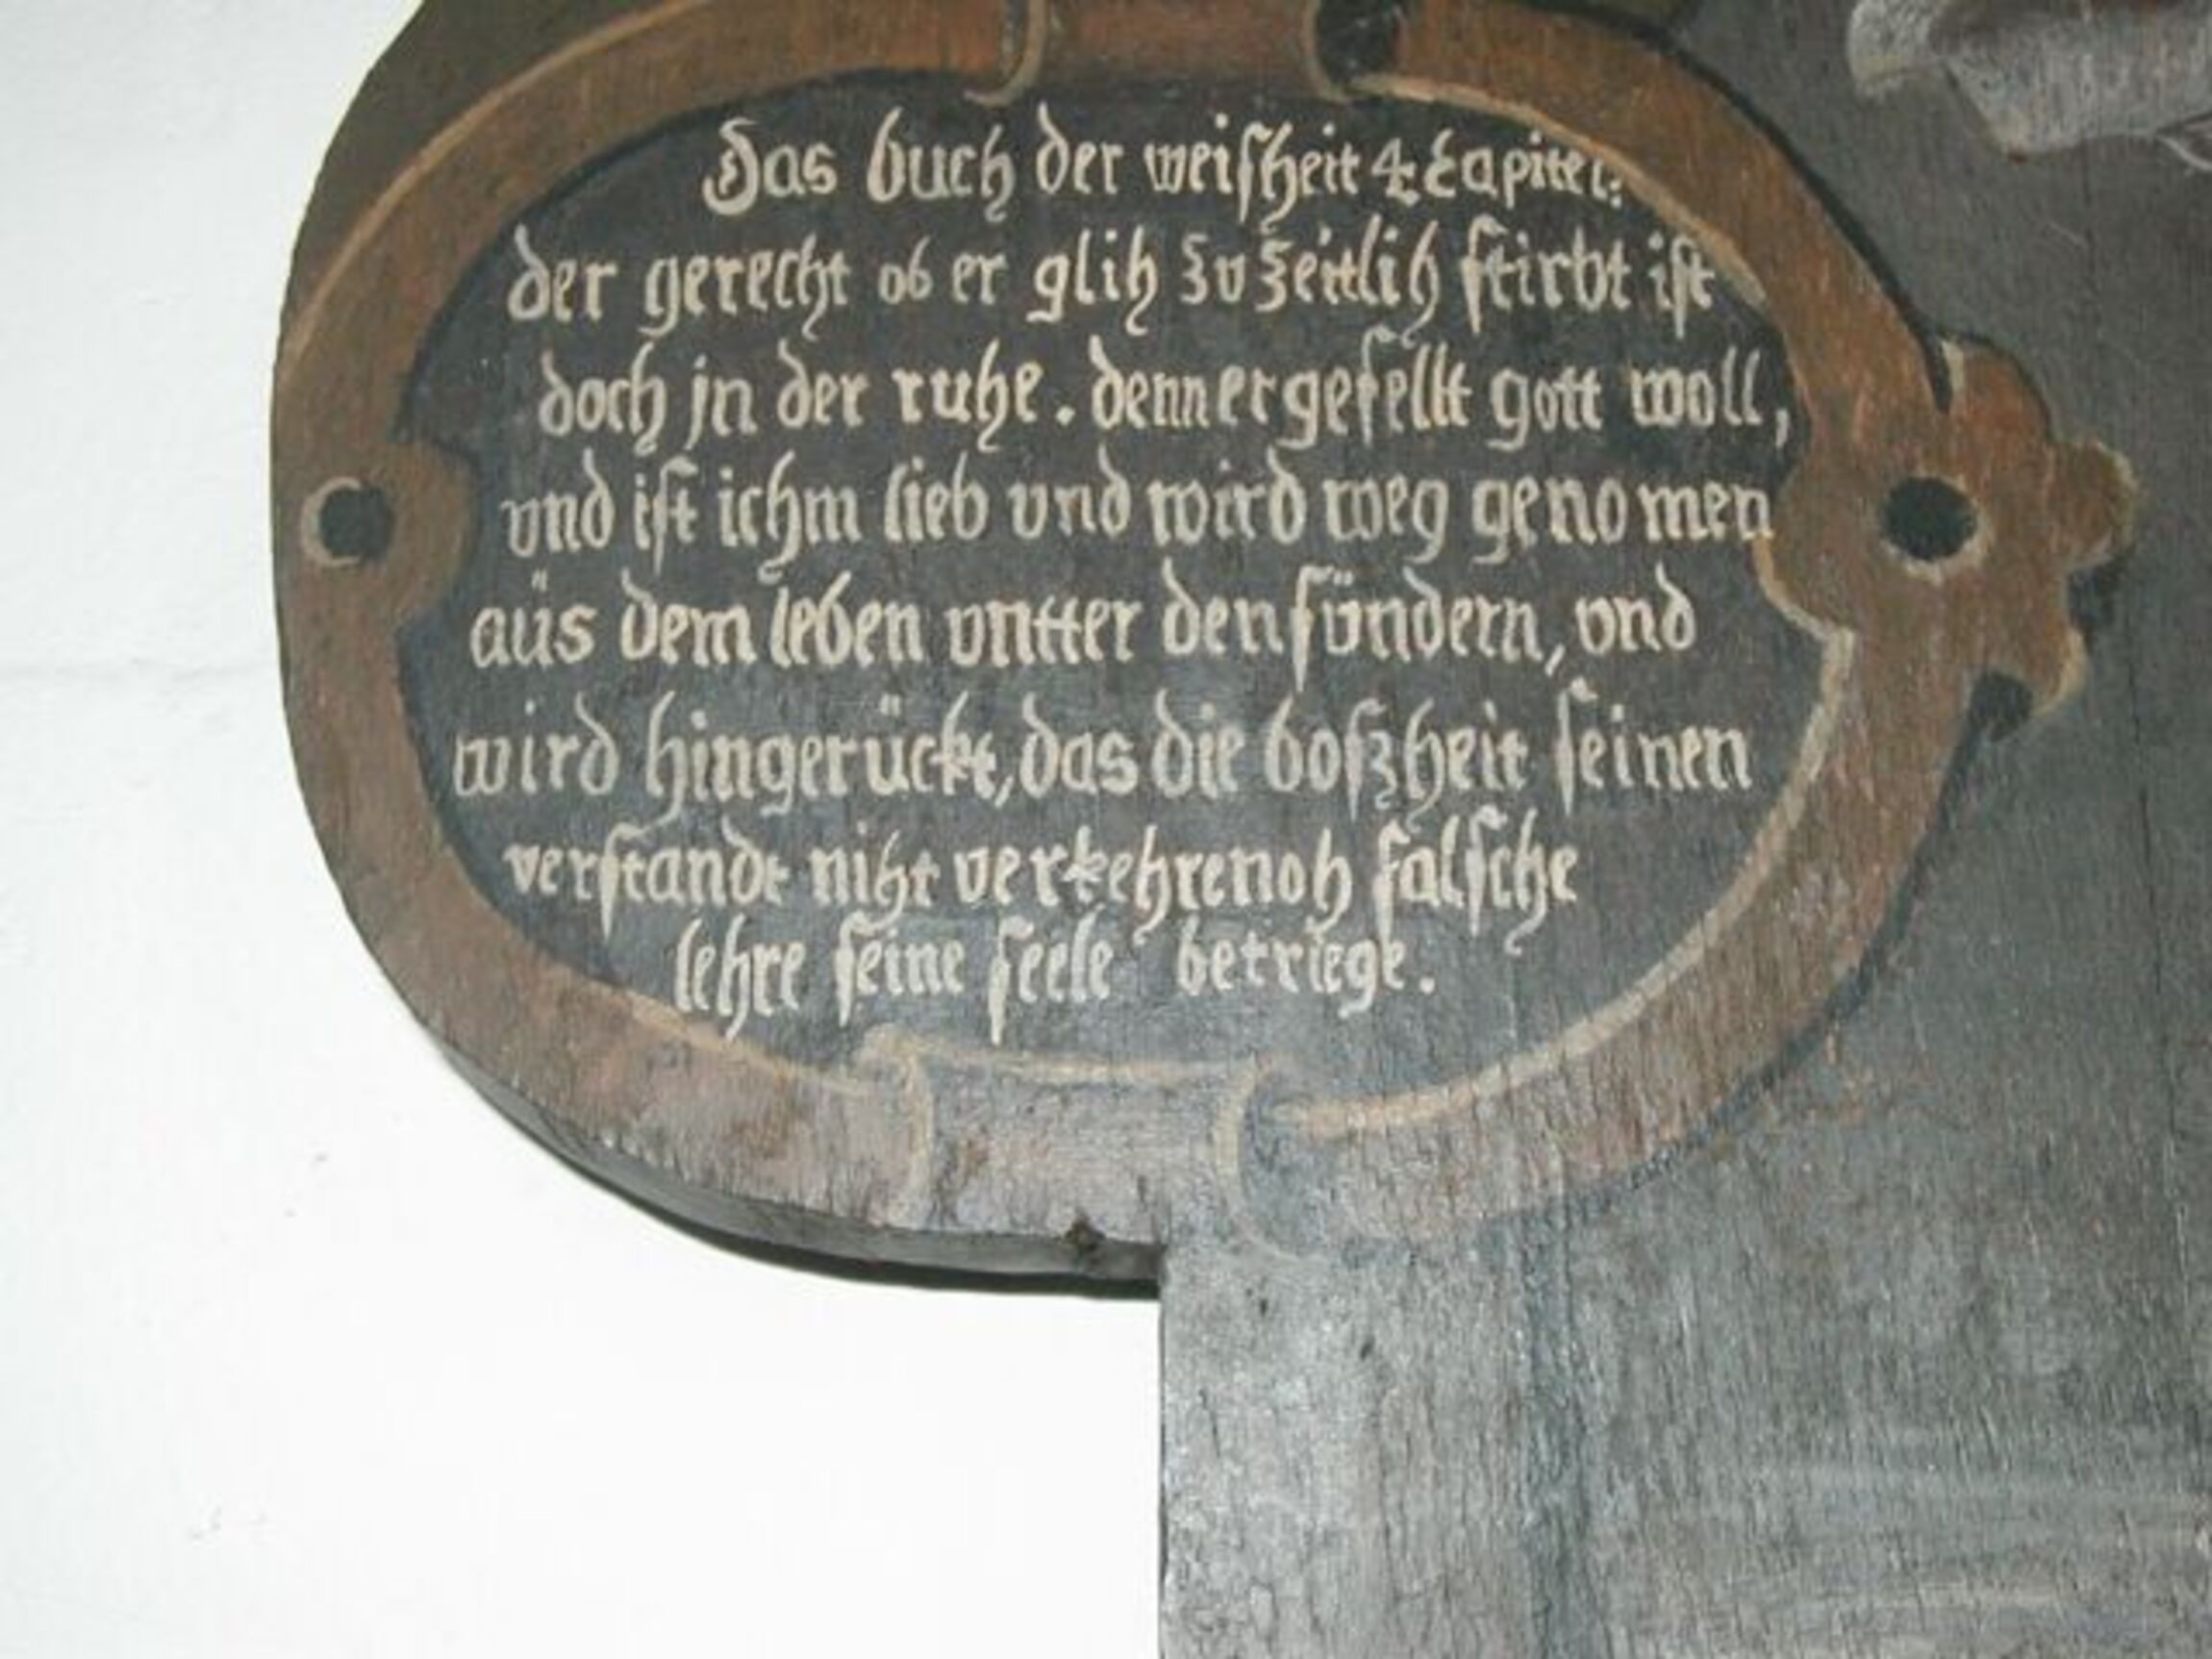 Das buch der weiſheit 4 Capitel:
der gerecht ob er glih zu zeitlih ſtirbt iſt
doch jn der ruhe. denn er gefellt gott woll,
vnd iſt ichm lieb vnd wird weg genomen
aüs dem leben vntter den ſündern, vnd
wird hingerückt, das die boſzheit ſeinen
verſtandt niht verkehre noh falſche
lehre ſeine ſeele betriege.